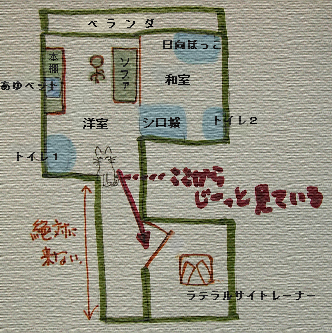 ベランダ
日向ぼっこ
本棚
ソファ
和室
あゆベット
洋室
シロ城
トイレ2
トイレ1
ここから
じーっと見ている
絶対に
来ない
ラテラルサイトレーナー